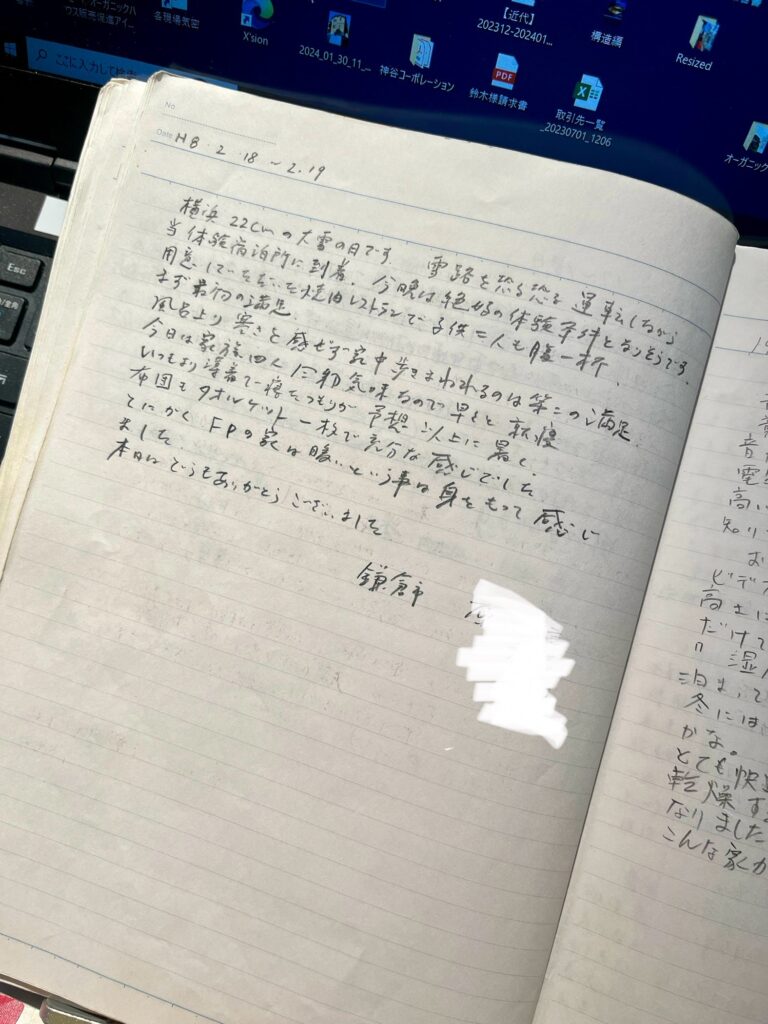 ウス販売促進アイ...
各現場気密
X'sion
2024_01_30_11_...
神谷コーポレーション
【近代】
202312-202401...
鈴木様請求書
PDF
構造編
取引先一覧
_20230701_1206
Resized
オーガニック
ここに入力して検索
Esc
No.
Date H8・2・18 〜 2.19
横浜 22cmの大雪の日です。 雪路を恐る恐る運転しながら
当体験宿泊所に到着。今晩は絶好の体験条件となりそうです。
用意していただいた焼肉レストランで子供二人も腹一杯、
まず最初の満足。
風呂上り寒さを感ぜず家中歩きまわれるのは第二の満足。
今日は家族四人 気味なので早々と就寝
いつもより薄着で寝たつもりが予想以上に暑く、
布団もタオルケット一枚で充分な感じでした。
とにかくFPの家は暖いという事は身をもって感じ
ました。
本日はどうもありがとうございました
鎌倉市
音
電
高い
知り
お
ビデオ
高さに
だけて
湿
泊まって
冬には
かな。
とても快適
乾燥す
なりました
こんな家が